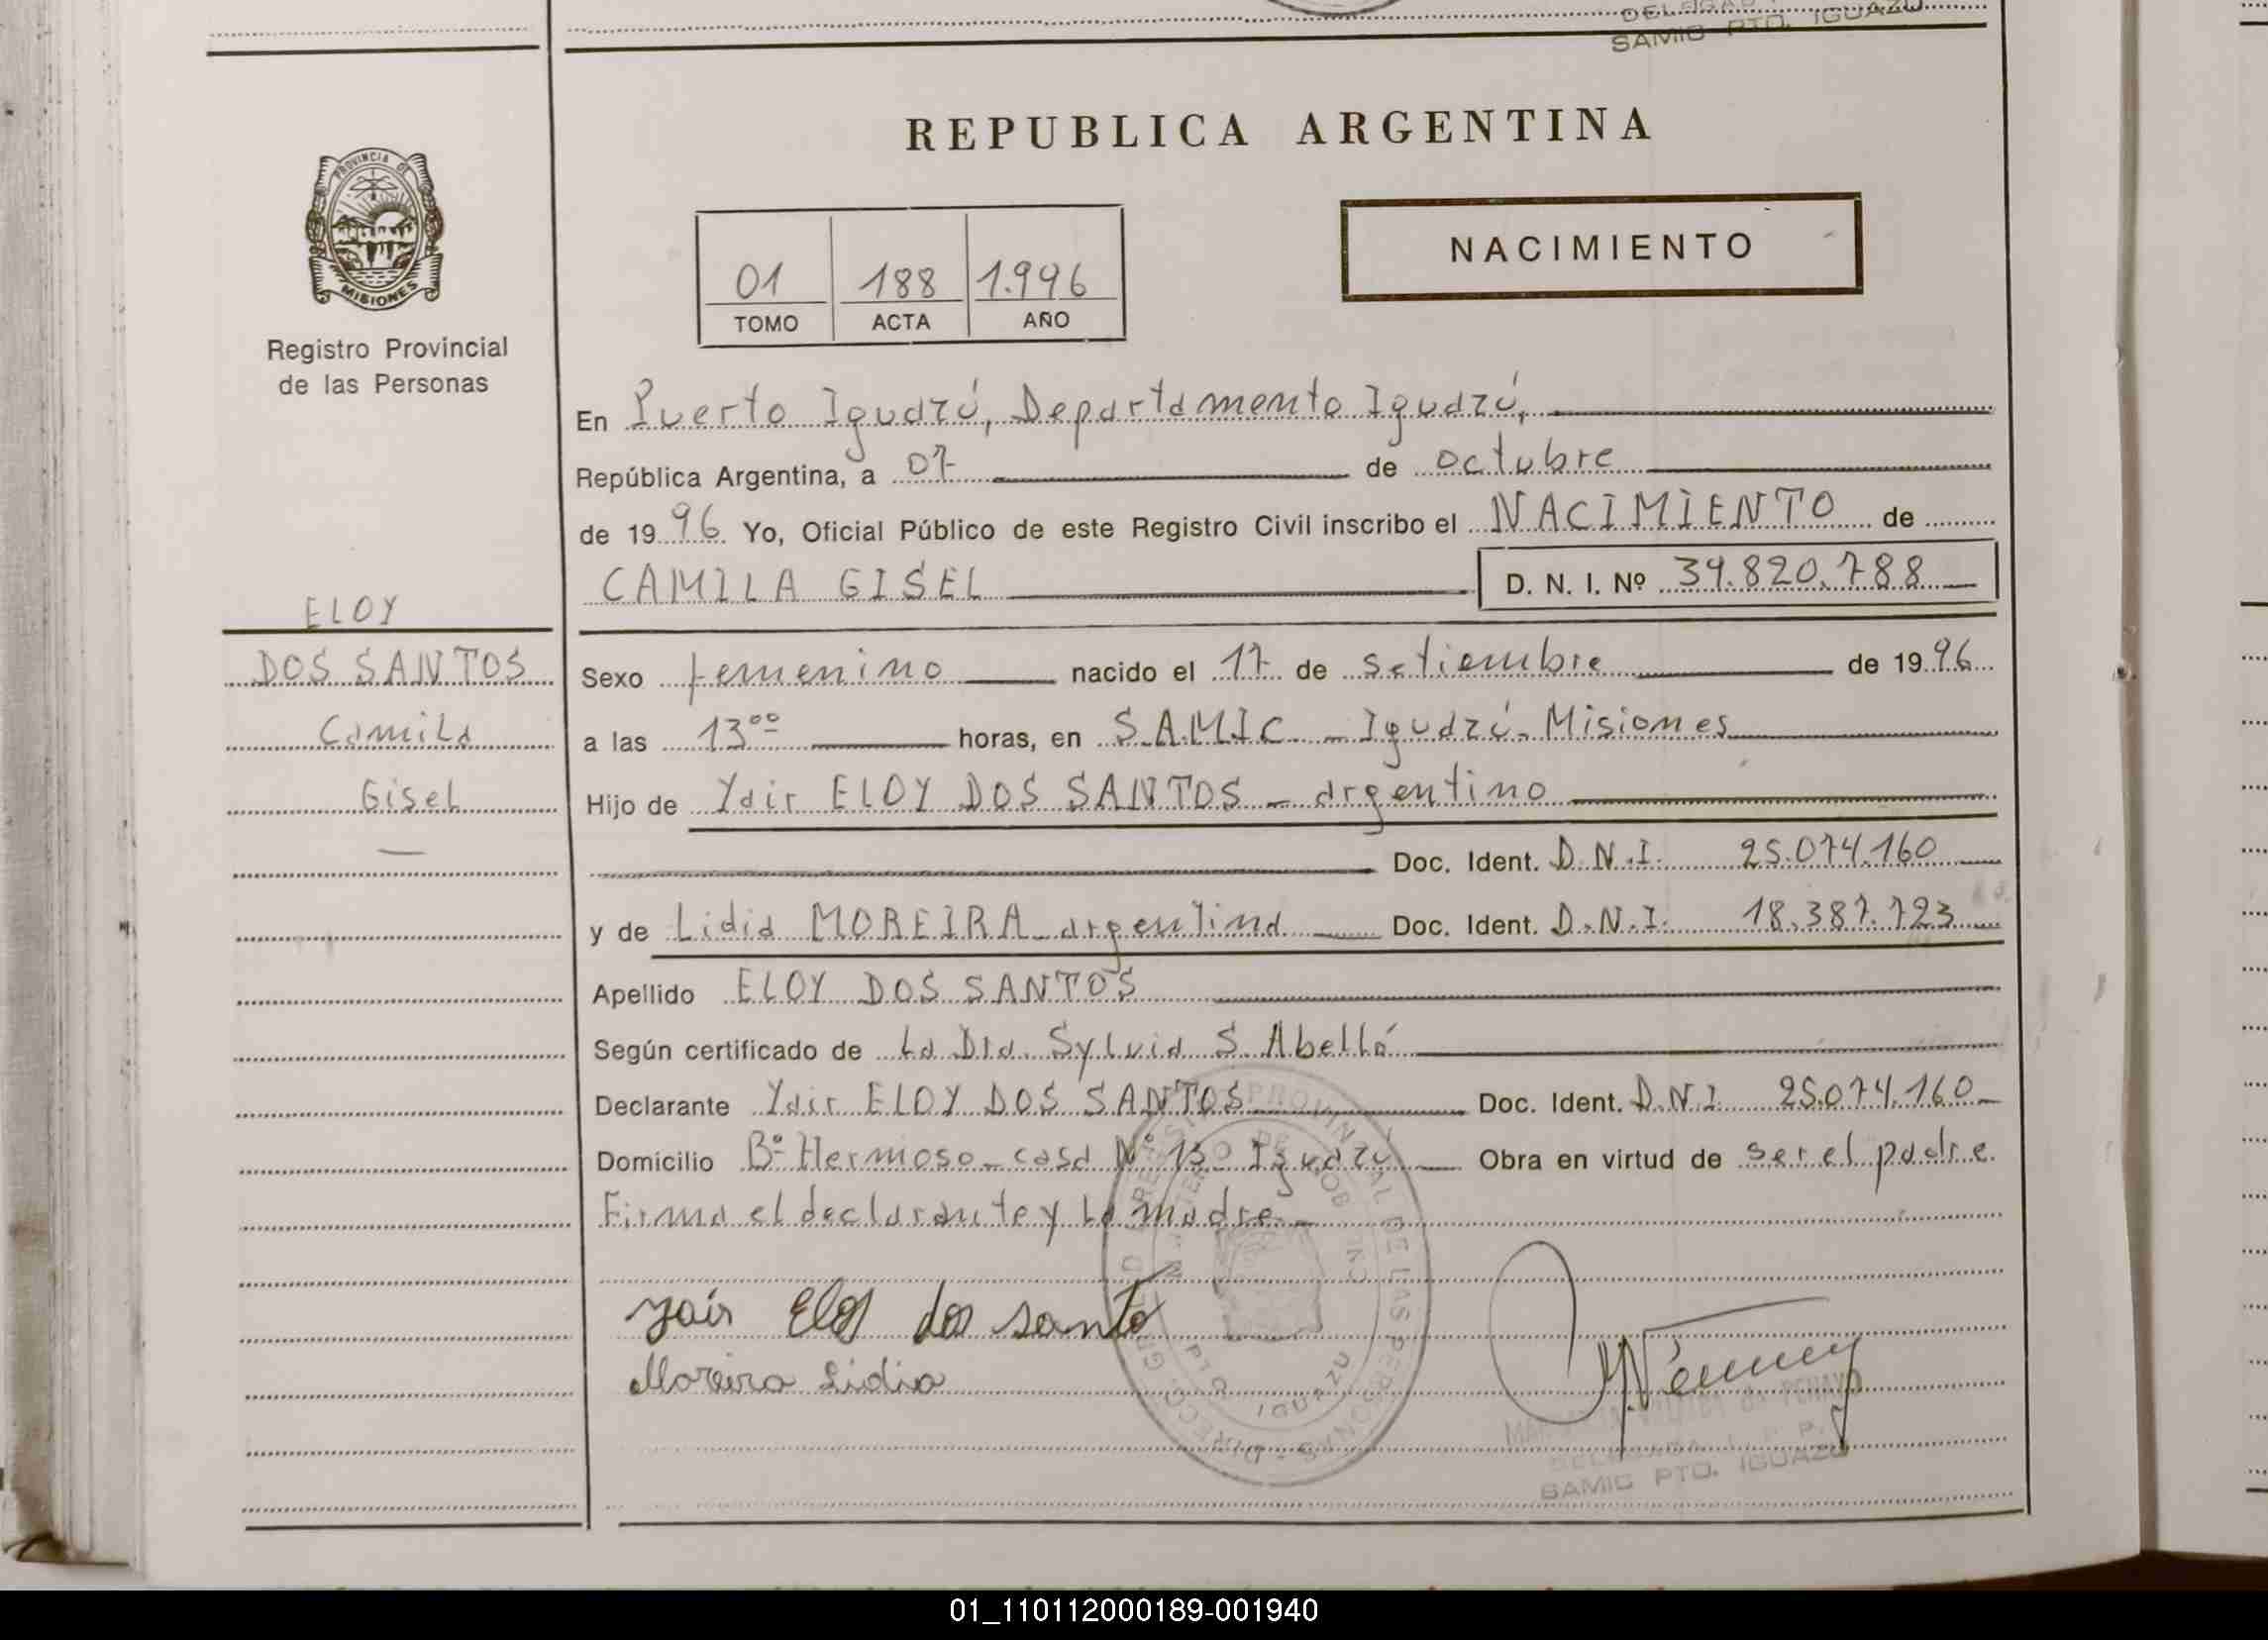 DELEGAD
SAMIC PTO. IGUAZU
REPUBLICA ARGENTINA
PROVINCIA DE
MISIONES
Registro Provincial
de las Personas
NACIMIENTO
01 188 1.996
TOMO ACTA AÑO
En Puerto Iguazú, Departamento Iguazú,
República Argentina, a 07 de octubre
de 1996 Yo, Oficial Público de este Registro Civil inscribo el NACIMIENTO de
CAMILA GISEL D. N. I. Nº 39.820.788
ELOY
DOS SANTOS
Camila
Gisel
Sexo femenino nacido el 17 de setiembre de 1996
a las 13⁰⁰ horas, en S.A.M.I.C. - Iguazú - Misiones
Hijo de Yair ELOY DOS SANTOS - argentino
Doc. Ident. D.N.I. 25.074.160
y de Lidia MOREIRA - argentina Doc. Ident. D.N.I. 18.387.723
Apellido ELOY DOS SANTOS
Según certificado de La Dra. Sylvia S. Abelló
Declarante Yair ELOY DOS SANTOS Doc. Ident. D.N.I 25.074.160
Domicilio Bº Hermoso - casa Nº 130 Iguazú Obra en virtud de ser el padre
Firma el declarante y la madre -
yair Eloy dos santo
Moreira Lidia
REGISTRO PROVINCIAL DE LAS PERSONAS
PTO IGUAZU
SAMIC PTO. IGUAZU
01_110112000189-001940